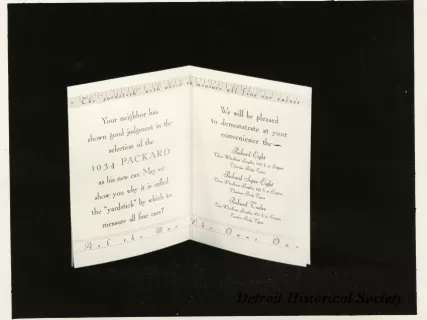 The "yardstick" with which to measure all fine car values
Your neighbor has
shown good judgment in the
selection of the
1934 PACKARD
as his new car. May we
show you why it is called
the "yardstick" by which to
measure all fine cars?
We will be pleased
to demonstrate at your
convenience the
Packard Eight
Packard Super Eight
Packard Twelve
Ask the Man Who Owns One
Detroit Historical Society